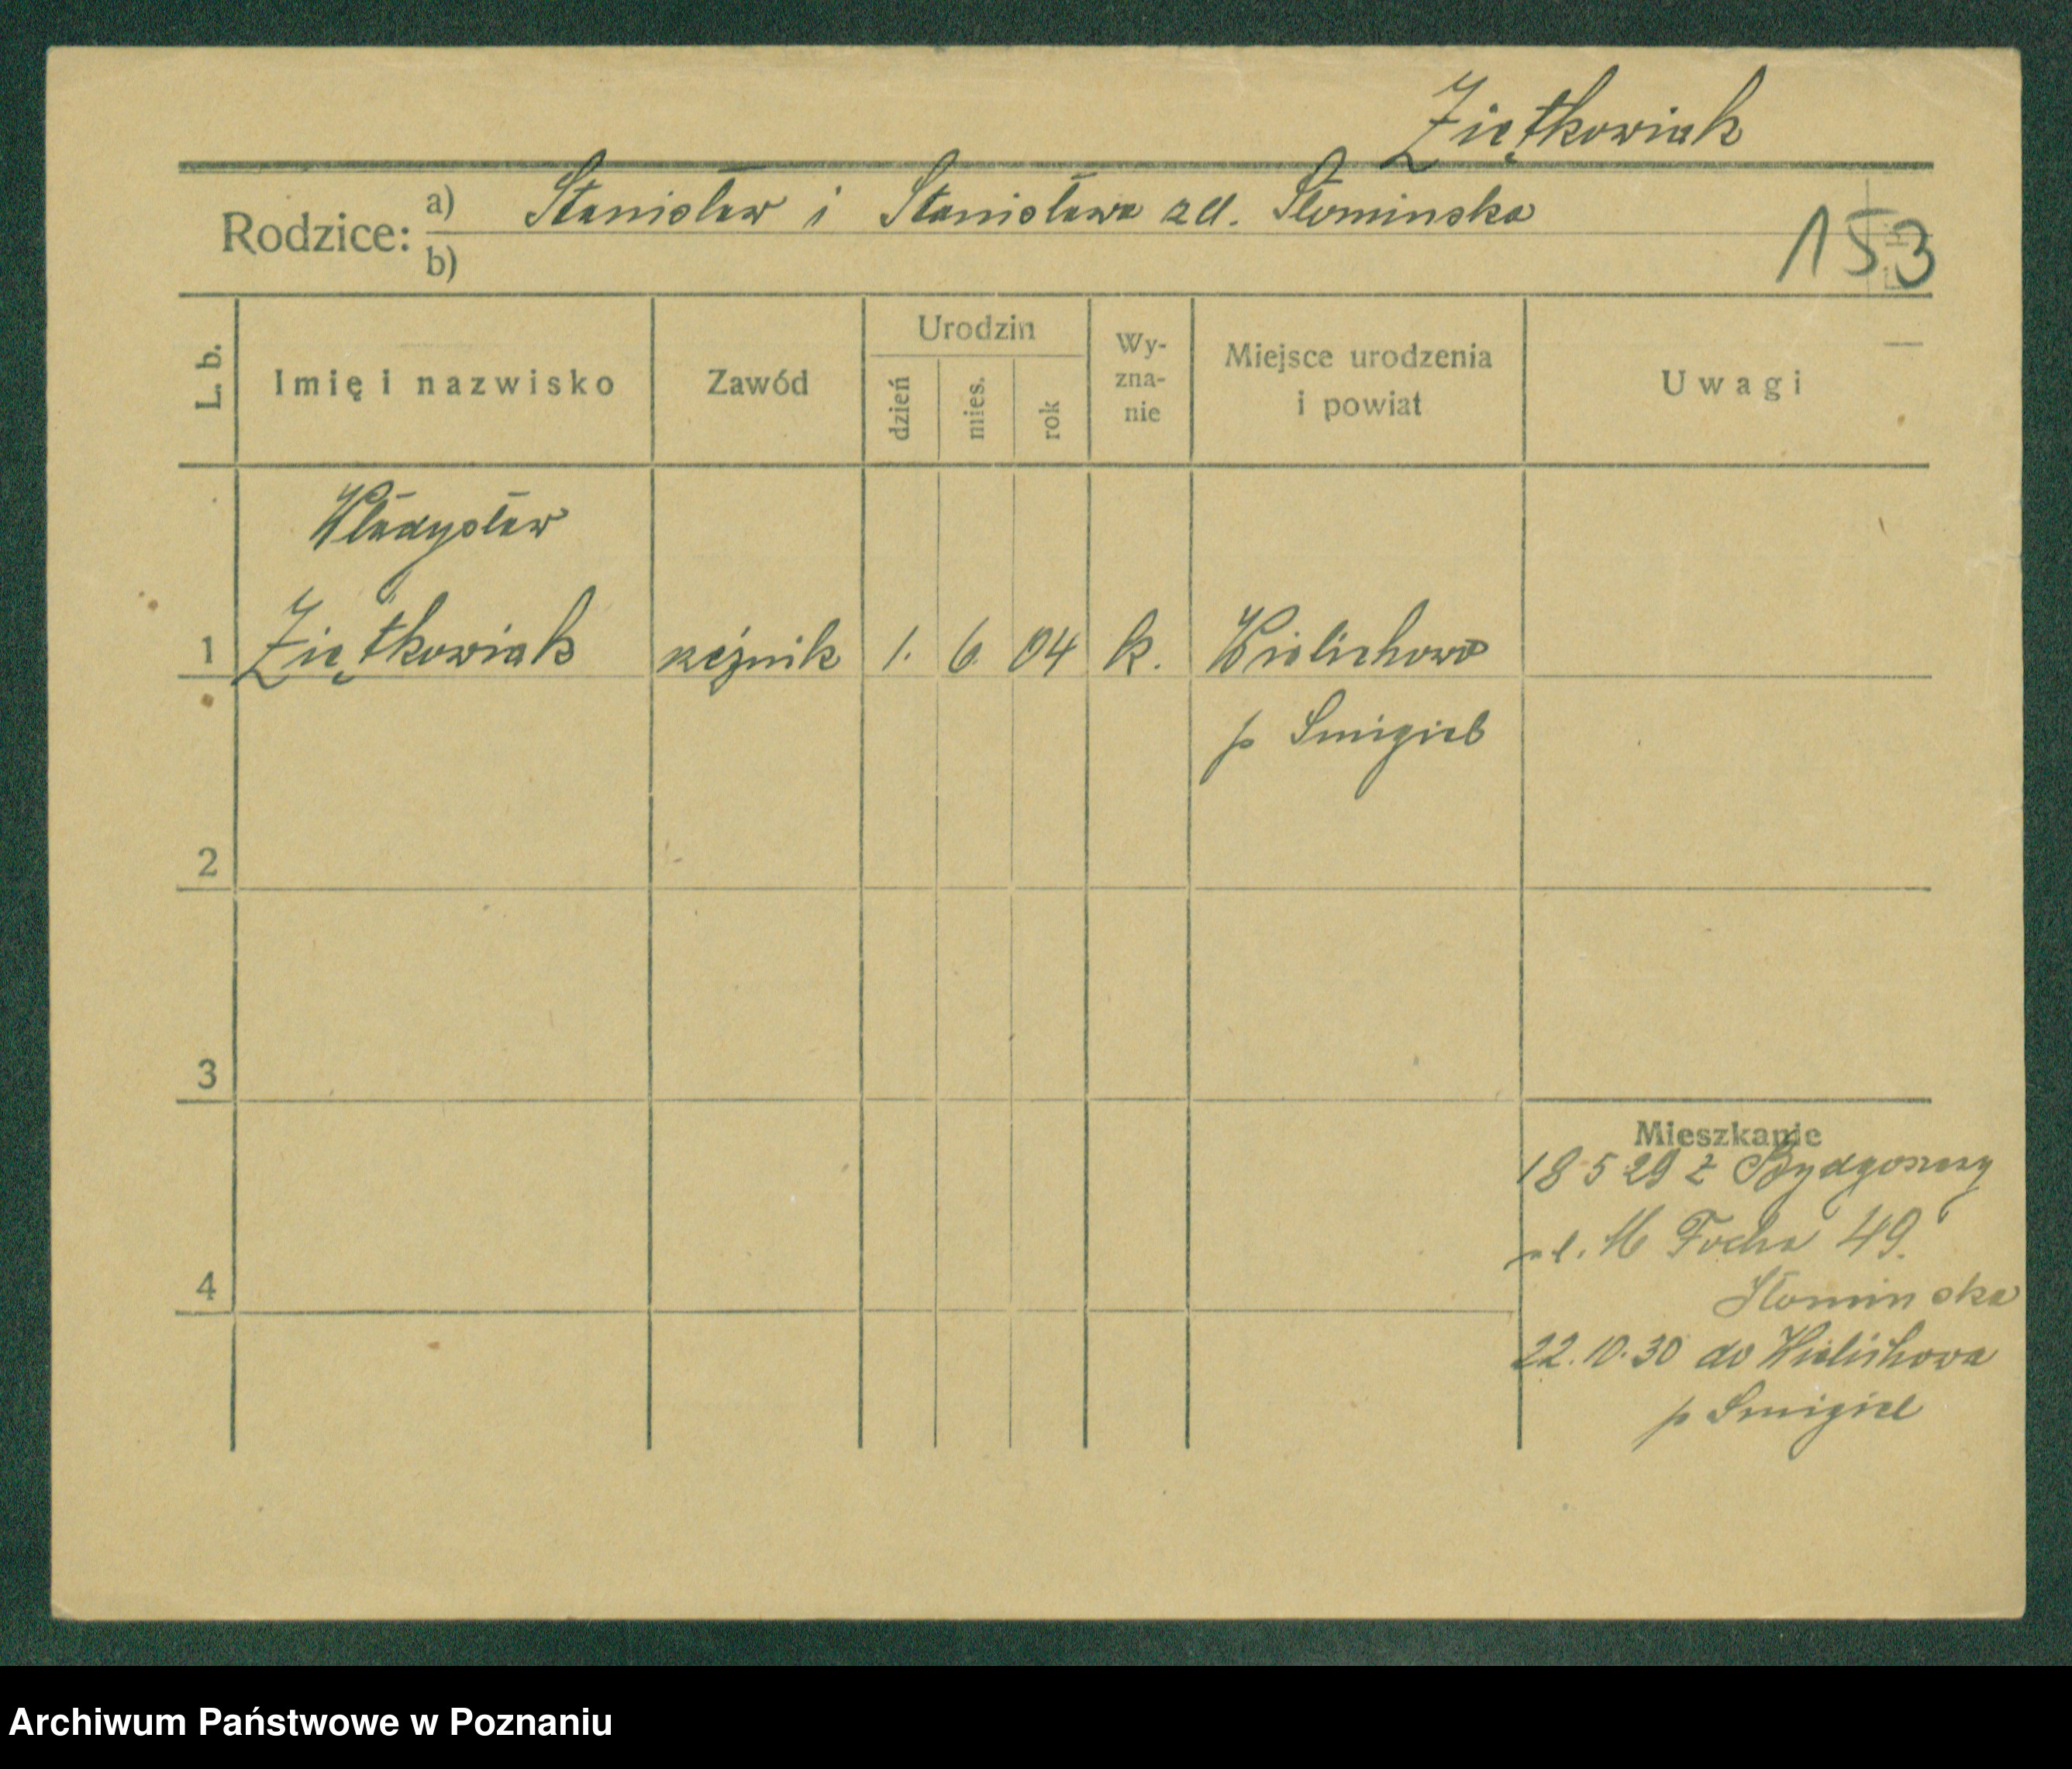 Ziętkowiak
Rodzice: a) Stanisław i Stanisława zd. Słominska
b)
153
L. b.
Imię i nazwisko
Zawód
Urodzin
dzień
mies.
rok
Wy-
zna-
nie
Miejsce urodzenia
i powiat
Uwagi
Władysław
1 Ziętkowiak rzeźnik 1. 6. 04 k. Wielichowo
p Smigiel
2
3
4
Mieszkanie
18 5 29 z Bydgoszczy
ul. M Focha 49.
Słominska
22.10.30 do Wielichowa
p Smigiel
Archiwum Państwowe w Poznaniu